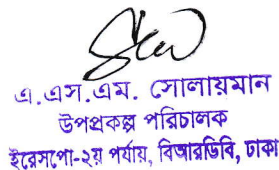 এ.এস.এম. সোলায়মান
উপপ্রকল্প পরিচালক
ইরেসপো-২য় পর্যায়, বিআরডিবি, ঢাকা